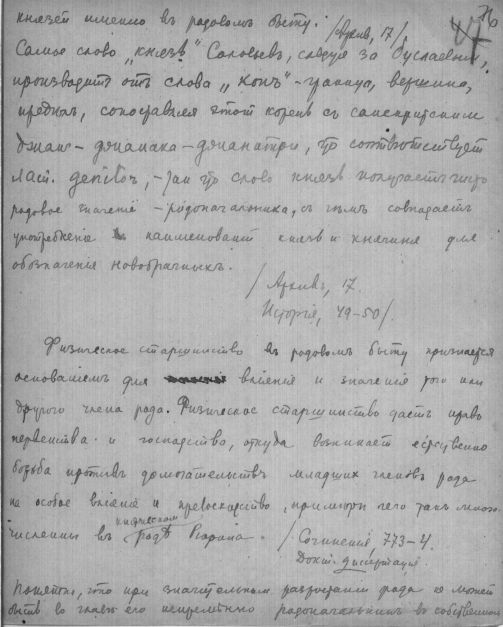 76
князей именно въ родовомъ быту.
/Архив, 17/
Самое слово „князь" Соловьевъ, следуя за Буслаевым,
производитъ отъ слова „конъ" – граница, вершина,
сопоставляя этотъ корень съ санскритским
джанака – , что соответствуетъ
лат. – так что слово князь получаетъ чисто
родовое значение – родоначальника, съ чемъ совпадаетъ
употребление наименований князь и княгиня для
обозначения новобрачныхъ.
/Архивъ, 17.
История, 49–50/.
Физическое старшинство въ родовомъ быту признается
основаниемъ для влияния и значения того или
другого члена рода. Физическое старшинство даетъ право
первенства и господство, откуда возникает естественно
борьба противъ домогательствъ младших членовъ рода
на особое влияние и превосходство, примеры чего такъ много-
численны въ княжескомъ родѣ Рюрика. /Сочинения 773–4.
Докт. диссертация
Понятно, что при значительном разрастании рода не может
быть во главе его непременно родоначальникъ въ собственном